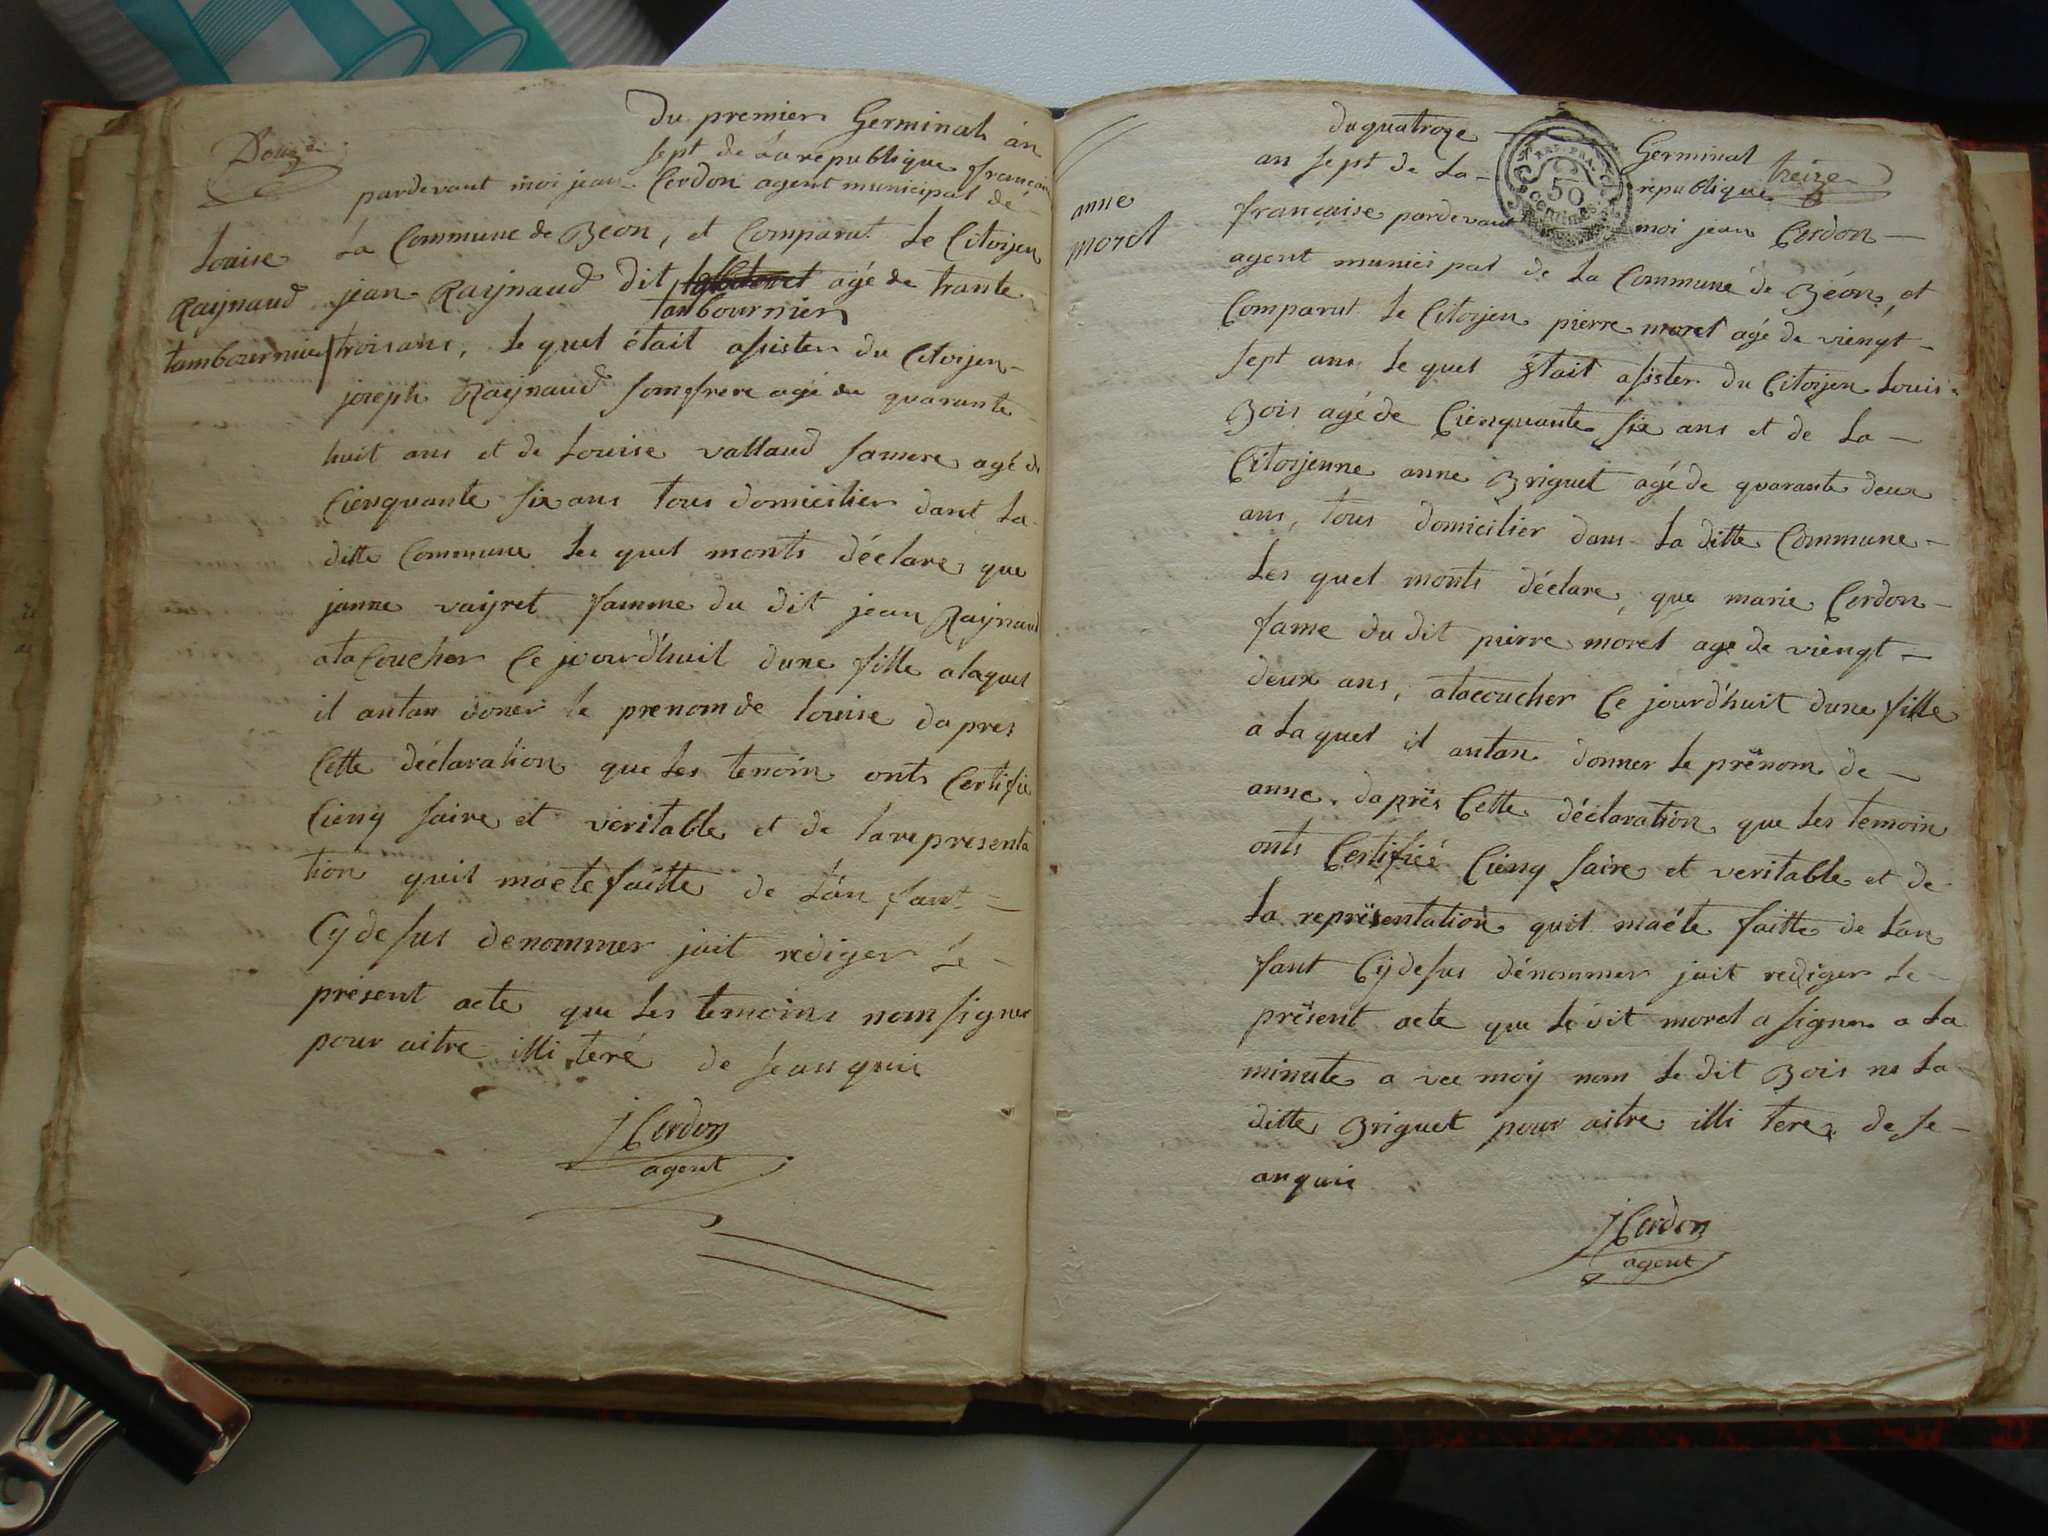 Du premier Germinal an
sept de la republique françai
pardevant moi jean Cerdon agent municipal dé
Louise
Raynaud
tambournier
la Commune de Béon, et Comparut le Citoijen
jean Raijnaud dit agé de trante
tambournier
trois ans, le quel était asister du Citoijen
joseph Raijnaud son frere agé de quarante
huit ans et de Louise vallaud samere agé de
Cienquante six ans tous domicilier dant la
ditte Commune les quel monts déclare que
janne vaijret famme du dit jean Raijnaud
ata Coucher Ce jourd'huit dune fille alaquel
il antan doner le prenom de louise dapres
Cette déclaration que les temoin onts Certifie
Cienq saire et veritable et de la representa
tion quil maete faitte de L'án fant
Cy de sus denommer jait rediger Le
présent acte que les temoins nom signer
pour aitre illi teré de se anquis
j Cerdon
agent
anne
morel
du quatroze Germinal
treize
an sept de La republique
française pardevant moi jean Cerdon
agent municipal de la Commune de Béon, et
Comparut le Citoijen pierre morel agé de viengt
sept ans le quel était asister du Citoijen Louis
Bois agé de Cienquante six ans et de La
Citoijenne anne Briguet agé de quarante deux
ans, tous domicilier dans la ditte Commune
Les quel monts déclare, que marie Cerdon
fame du dit pierre morel age de viengt
deux ans, ata coucher Ce jourd'huit dune fille
a la quel il antan donner le prënom de
anne. daprës Cette déclaration que les temoin
onts Certifiée Cienq saire et veritable et de
la reprësentation quil maéte faitte de L'án
fant Cij de sus dénommer jait rediger le
prësent acte que le dit morel a signer a la
minute a vec moy nom le dit Bois ne la
ditte Briguet pour aitre illi tere de se
anquis
j Cerdon
agent
REP. FRA.
50
centimes